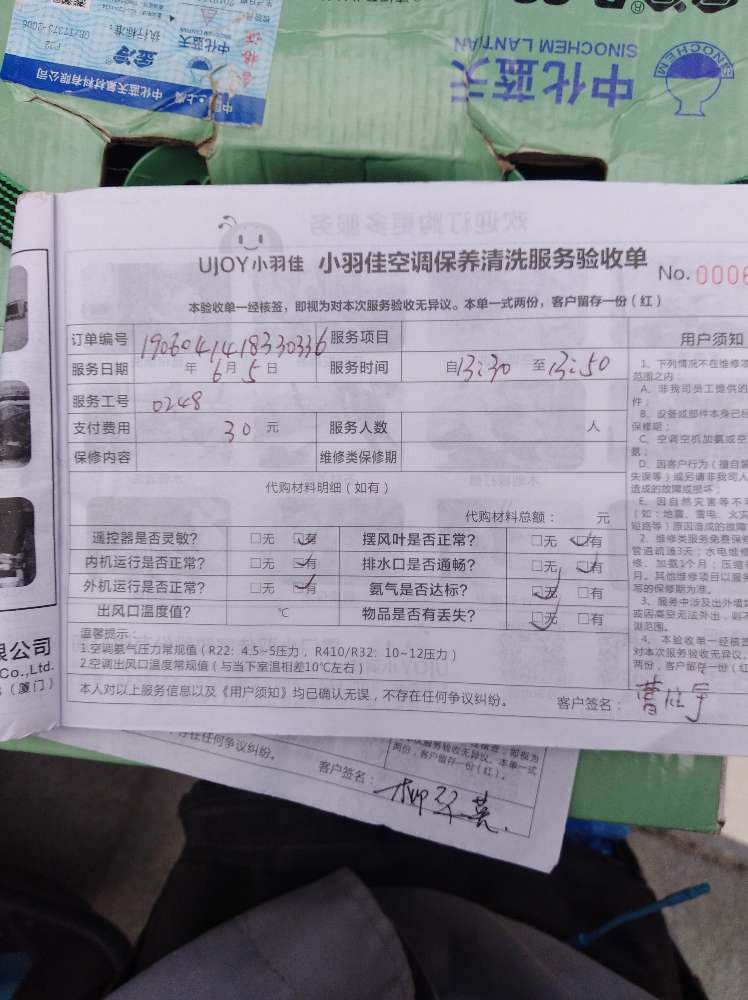 中化蓝天
SINOCHEM LANTIAN
SINOCHEM
金冷
执行标准：
GB/T7373-2006
合格证
中化蓝天氟材料有限公司
UJOY小羽佳 小羽佳空调保养清洗服务验收单
No. 0006
本验收单一经核签，即视为对本次服务验收无异议。本单一式两份，客户留存一份（红）
订单编号 1906041418330336 服务项目
服务日期 年 6 月 5 日 服务时间 自13:30 至13:50
服务工号 0248
支付费用 30 元 服务人数 人
保修内容 维修类保修期
代购材料明细（如有）
代购材料总额： 元
遥控器是否灵敏？ □无 □有 摆风叶是否正常？ □无 □有
内机运行是否正常？ □无 □有 排水口是否通畅？ □无 □有
外机运行是否正常？ □无 □有 氨气是否达标？ □无 □有
出风口温度值？ ℃ 物品是否有丢失？ □无 □有
温馨提示：
1.空调氨气压力常规值（R22：4.5~5压力，R410/R32：10~12压力）
2.空调出风口温度常规值（与当下室温相差10℃左右）
本人对以上服务信息以及《用户须知》均已确认无误，不存在任何争议纠纷。 客户签名：
用户须知
1、下列情况不在维修
范围之内：
A、非我司员工提供的
件；
B、设备或部件本身已
保修期；
C、空调空机加氨或空
氨；
D、因客户行为（擅自
失误等）或另请非我司人
造成的故障或损坏；
E、因自然灾害等不
（如：地震、雷电、火灾
短路等）原因造成的故障
2、维修类服务免费保
管道疏通3天；水电维修
修、加氨1个月；压缩
月。其他维修项目以服务
写的保修期为准。
3、服务中涉及出外墙
或因高空无法外出，则
测范围。
4、本验收单一经核签
对本次服务验收无异议。
两份，客户留存一份（红
限公司
Co.,Ltd.
（厦门）
存在任何争议纠纷。
客户签名：
次服务验收无异议。本单一式
两份，客户留存一份（红）。